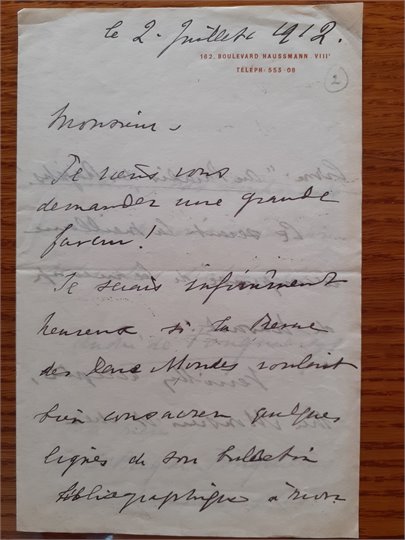 le 2 Juillet 1912.
162. BOULEVARD HAUSSMANN. VIIIᵉ
TÉLÉPH. 553-08
2
Monsieur,
Je viens vous
demander une grande
faveur!
Je serais infiniment
heureux si la Revue
des Deux Mondes voulait
bien consacrer quelques
lignes de son bulletin
bibliographique à mon